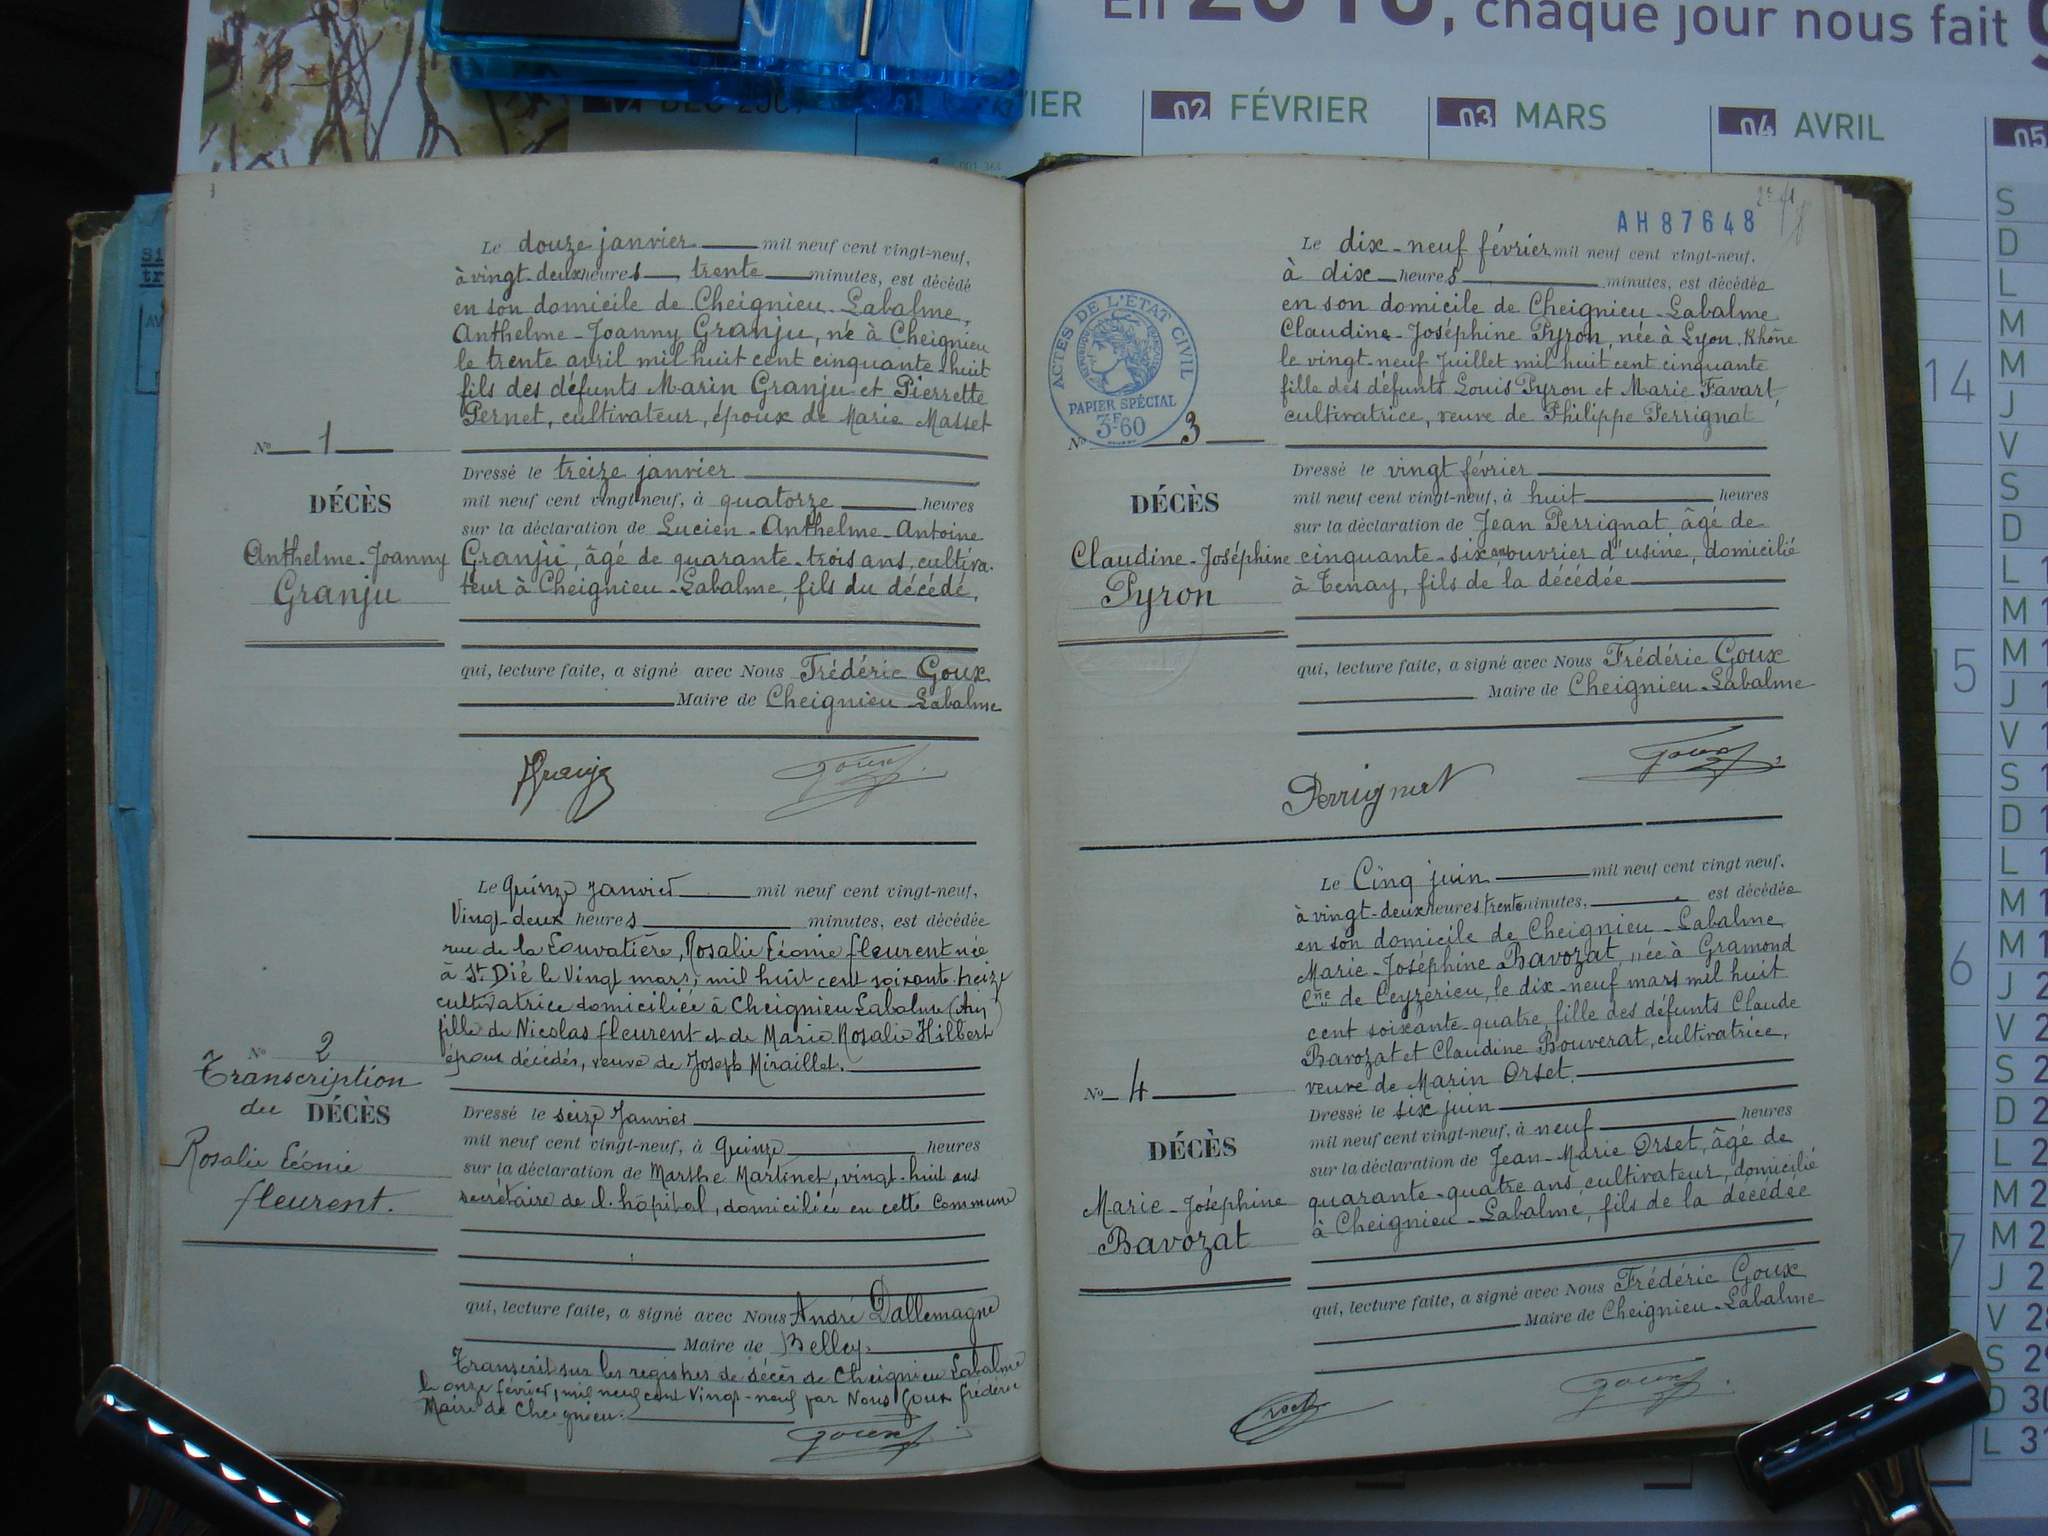 En 2010, chaque jour nous fait
DEC
VIER
02 FÉVRIER
03 MARS
04 AVRIL
05
Le douze janvier mil neuf cent vingt-neuf,
à vingt-deux heures trente minutes, est décédé
en son domicile de Cheignieu-Labalme,
Anthelme-Joanny Granju, né à Cheignieu
le trente avril mil huit cent cinquante-huit
fils des défunts Marin Granju et Pierrette
Pernet, cultivateur, époux de Marie Masset
N° 1
DÉCÈS
Anthelme-Joanny
Granju
Dressé le treize janvier
mil neuf cent vingt-neuf, à quatorze heures
sur la déclaration de Lucien-Anthelme-Antoine
Granju, âgé de quarante-trois ans, cultiva-
teur à Cheignieu-Labalme, fils du décédé,
qui, lecture faite, a signé avec Nous Frédéric Goux
Maire de Cheignieu-Labalme
Granju
Goux
Le quinze Janvier mil neuf cent vingt-neuf,
Vingt-deux heures minutes, est décédée
rue de la Louvatière, Rosalie Léonie fleurent née
à St Dié le Vingt mars, mil huit cent soixante-treize
cultivatrice domiciliée à Cheignieu Labalme (Ain)
fille de Nicolas fleurent et de Marie Rosalie Hilbert
époux décédés, veuve de Joseph Miraillet.
N° 2
Transcription
du DÉCÈS
Rosalie Léonie
fleurent.
Dressé le seize Janvier
mil neuf cent vingt-neuf, à Quinze heures
sur la déclaration de Marthe Martinet, vingt-huit ans
secrétaire de l'hôpital, domiciliée en cette Commune
qui, lecture faite, a signé avec Nous André Dallemagne
Maire de Belley.
Transcrit sur les registres de décès de Cheignieu Labalme
le onze février, mil neuf cent Vingt-neuf par Nous Goux frédéric
Maire de Cheignieu.
Goux
AH87648
Le dix-neuf février mil neuf cent vingt-neuf,
à dix heures minutes, est décédée
en son domicile de Cheignieu-Labalme
Claudine-Joséphine Pyron, née à Lyon, Rhône
le vingt-neuf Juillet mil huit cent cinquante
fille des défunts Louis Pyron et Marie Favart,
cultivatrice, veuve de Philippe Perrignat
ACTES DE L'ÉTAT CIVIL
PAPIER SPÉCIAL
3F60
N° 3
DÉCÈS
Claudine-Joséphine
Pyron
Dressé le vingt février
mil neuf cent vingt-neuf, à huit heures
sur la déclaration de Jean Perrignat âgé de
cinquante-six ans ouvrier d'usine, domicilié
à Tenay, fils de la décédée
qui, lecture faite, a signé avec Nous Frédéric Goux
Maire de Cheignieu-Labalme
Perrignat
Goux
Le Cinq juin mil neuf cent vingt neuf,
à vingt-deux heures trente minutes, est décédée
en son domicile de Cheignieu-Labalme
Marie-Joséphine Bavozat, née à Gramond
Cne de Ceyzerieu, le dix-neuf mars mil huit
cent soixante-quatre, fille des défunts Claude
Bavozat et Claudine Bouverat, cultivatrice,
veuve de Marin Orset.
N° 4
DÉCÈS
Marie-Joséphine
Bavozat
Dressé le six juin
mil neuf cent vingt-neuf, à neuf heures
sur la déclaration de Jean-Marie Orset, âgé de
quarante-quatre ans, cultivateur, domicilié
à Cheignieu-Labalme, fils de la décédée
qui, lecture faite, a signé avec Nous Frédéric Goux
Maire de Cheignieu-Labalme
Orset
Goux
14
15
6
7
S
D
L
M
M
J
V
S
D
L 1
M 1
M 1
J 1
V 1
S 1
D 1
L 1
M 1
M 1
J 2
V 2
S 2
D 2
L 2
M 2
M 2
J 2
V 28
S 29
D 30
L 31